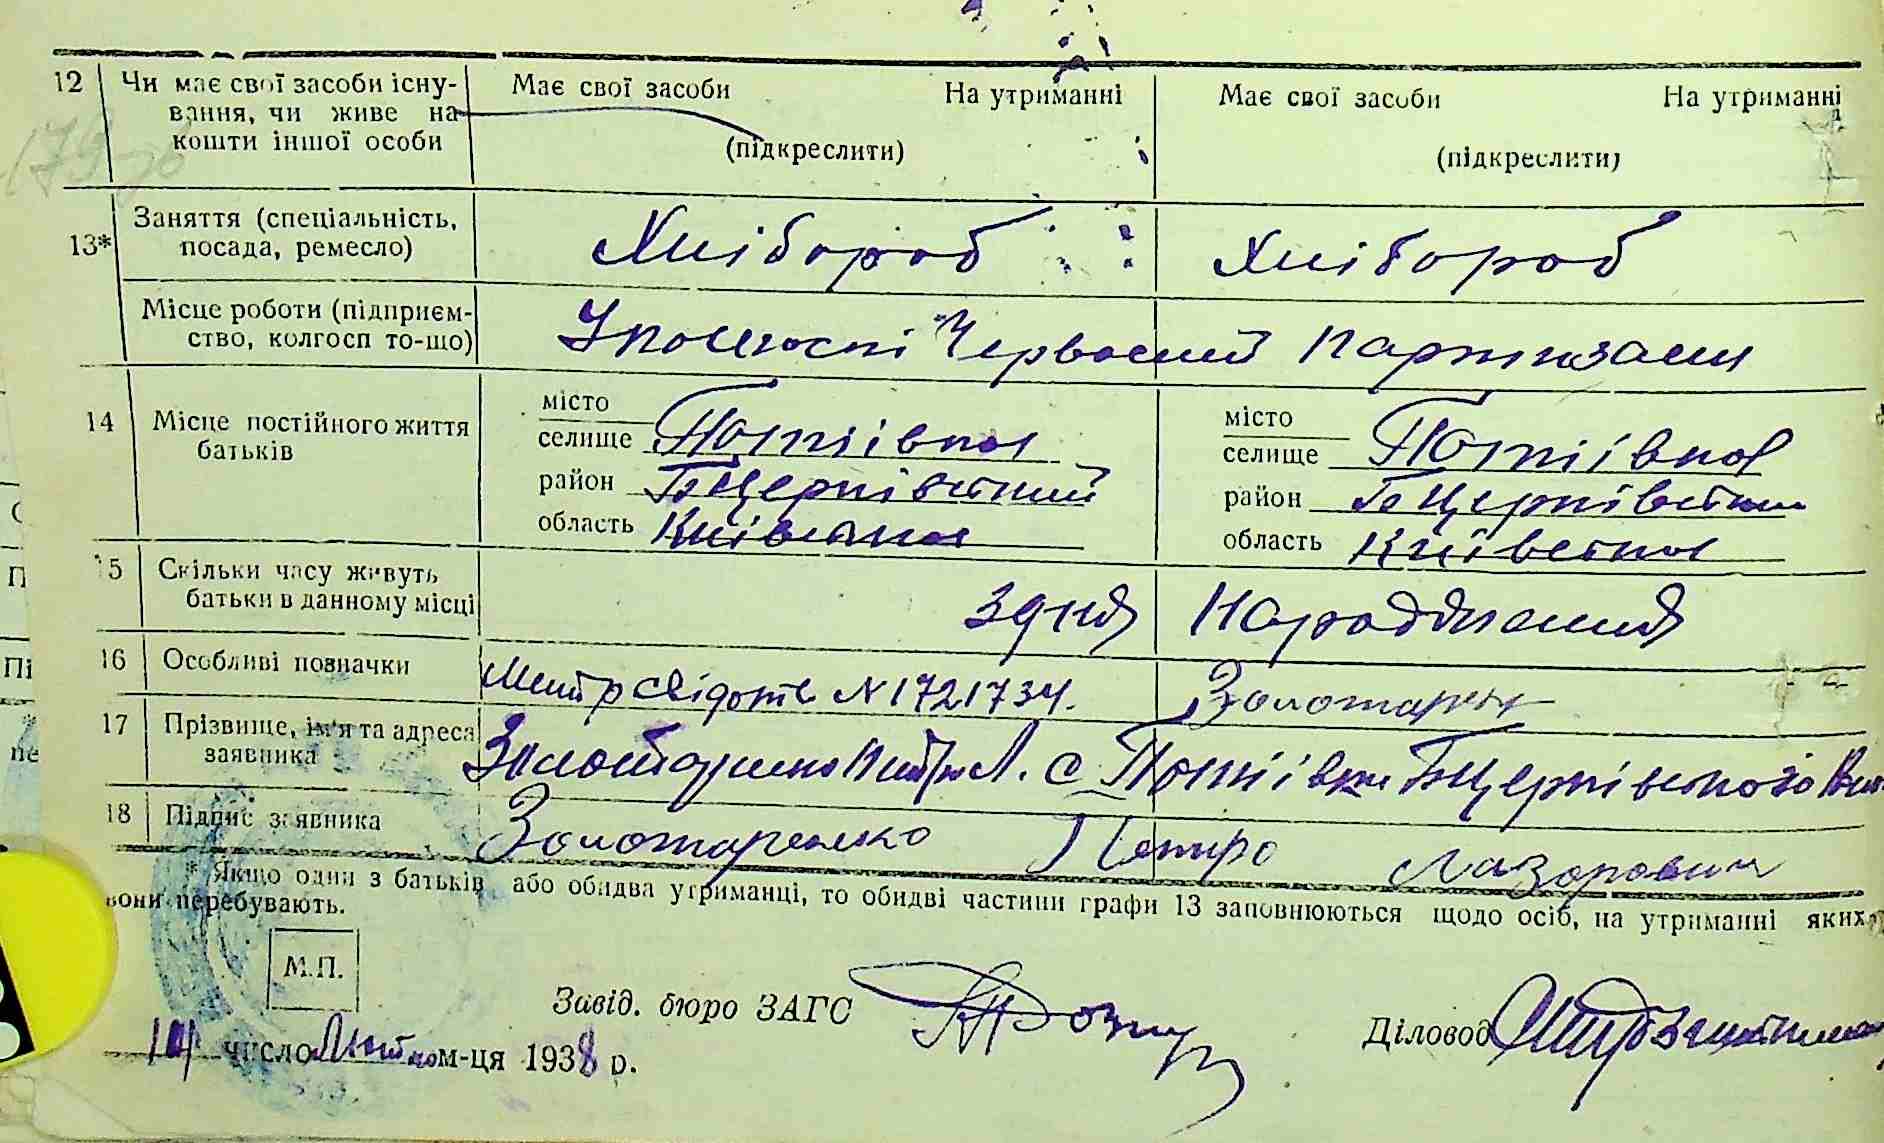 12 Чи має свої засоби існу- Має свої засоби На утриманні Має свої засоби На утриманні
вання, чи живе на
кошти іншої особи (підкреслити) (підкреслити)
13* Заняття (спеціальність, Хлібороб Хлібороб
посада, ремесло)
Місце роботи (підприєм- Червоний Партизани
ство, колгосп то-що)
14 Місце постійного життя місто місто
батьків селище Потіївка селище Потіївка
район Б Церківський район Б Церківський
область Київська область Київська
15 Скільки часу живуть з дня народження
батьки в данному місці
16 Особливі позначки Метр свідотв N 1721734. Золотарен
17 Прізвище, ім'я та адреса Золотаренко Петро Л. с Потіївки БЦерківського
заявника
18 Підпис заявника Золотаренко Петро Лазорович
* Якщо один з батьків або обидва утриманці, то обидві частини графи 13 заповнюються щодо осіб, на утриманні яких
вони перебувають.
М.П.
Завід. бюро ЗАГС
Діловод
14 число Лютого м-ця 1938 р.